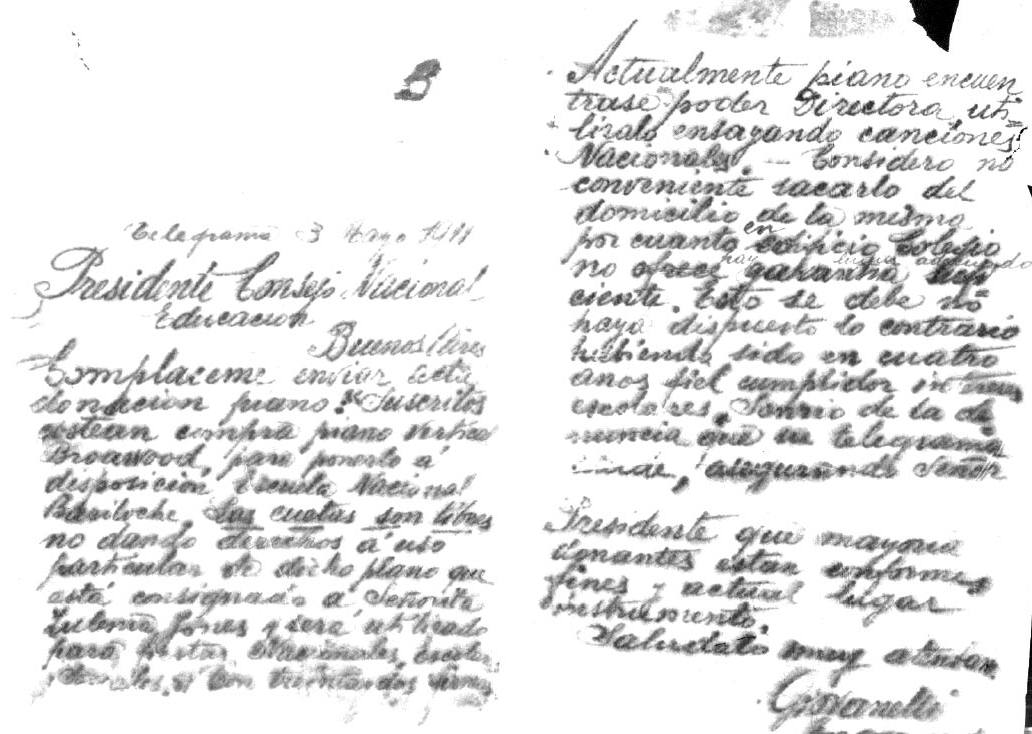 B
Telegrama 3 Mayo 1911
Presidente Consejo Nacional
Educación
Buenos Aires
Complaceme enviar acta
donacion piano: "Suscritos
costean compra piano vertical
Broawood, para ponerlo á
disposicion Escuela Nacional
Bariloche. Las cuotas son libres
no dando derechos á uso
particular de dicho piano que
está consignado á Señorita
Zulema Jones y será utilizado
para fiestas Nacionales, escolares
Con treintaidos firmas
Actualmente piano encuen
trase poder Directora, uti=
lizalo ensayando canciones
Nacionales. — Considero no
conveniente sacarlo del
domicilio de la misma
por cuanto en edificio Colegio
no hay lugar adecuado
no ofrece garantia sufi
ciente. Esto se debe no
haya dispuesto lo contrario
habiendo sido en cuatro
años fiel cumplidor
escolares. Sonrio de la de
nuncia que su telegrama
alude, asegurando Señor
Presidente que mayoria
donantes estan conformes
fines y actual lugar
instrumento
Saludalo muy atentam.
Giovanelli